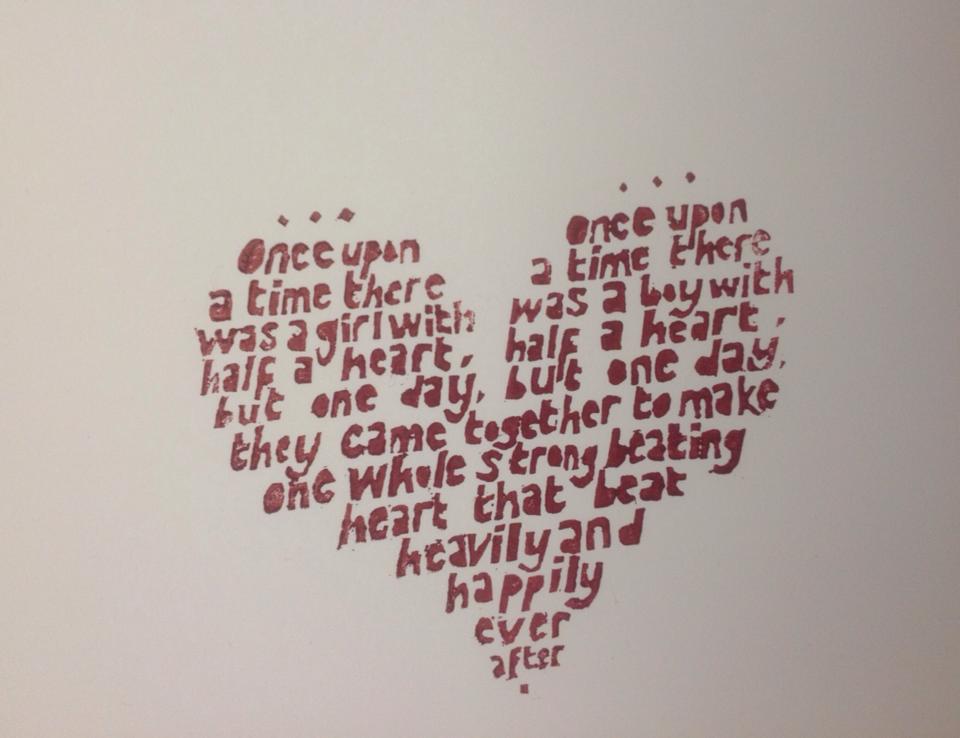 ...
Once upon
a time there
was a girl with
half a heart,
but one day,
...
once upon
a time there
was a boy with
half a heart,
but one day,
they came together to make
one whole strong beating
heart that beat
heavily and
happily
ever
after
.